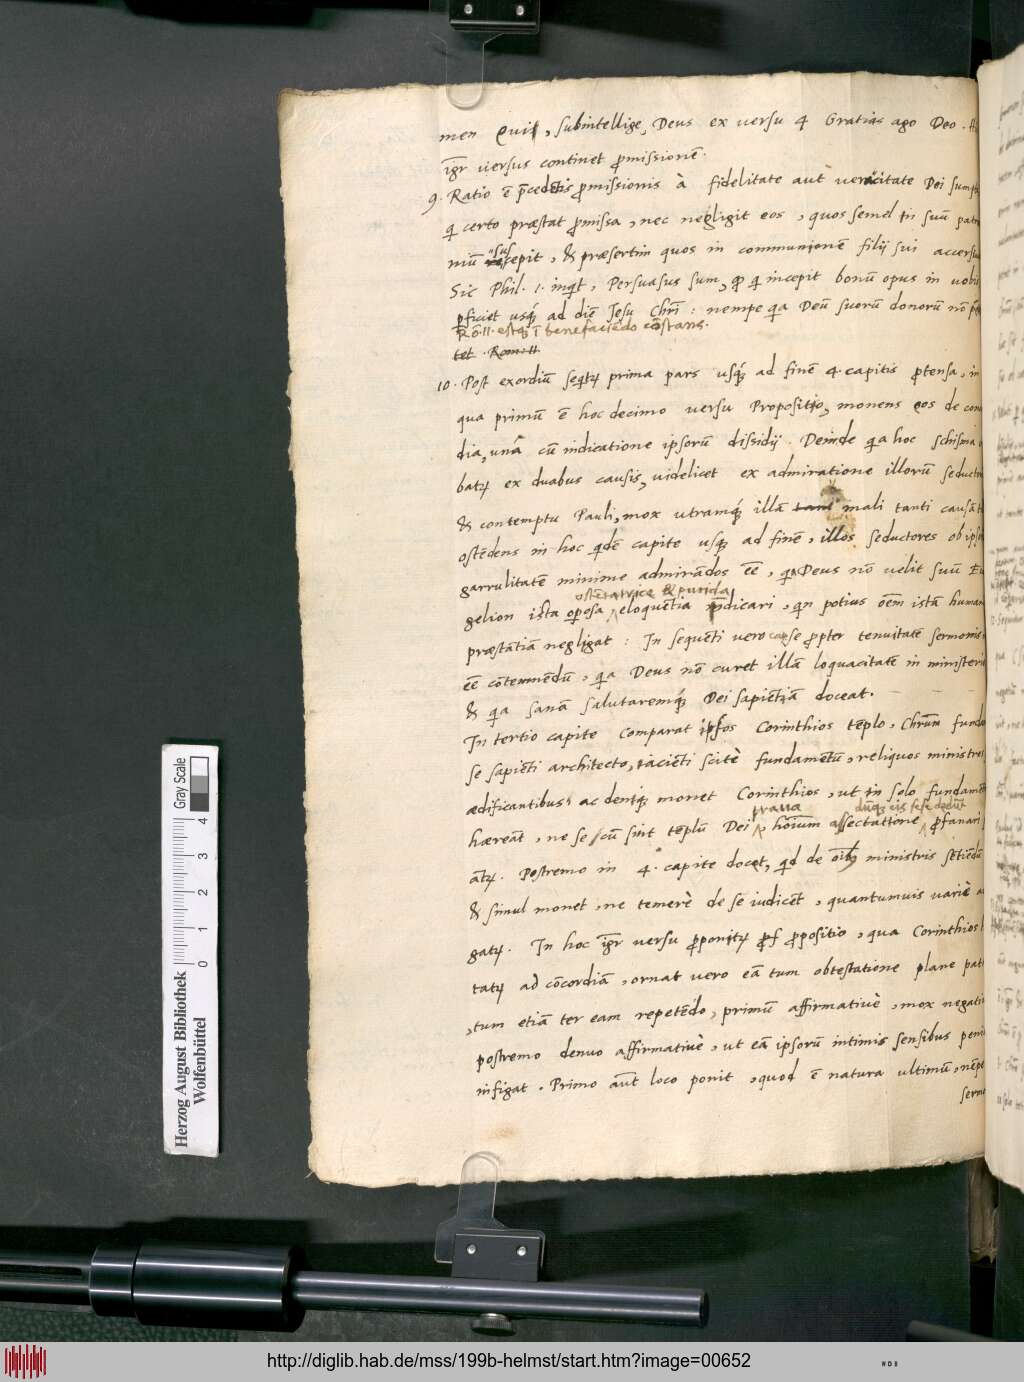 men Qui, subintellige, Deus ex versu 4 Gratias ago Deo. Hi
iḡr versus continet ꝓmissionē.
9. Ratio ē p̄cedētis ꝓmissionis à fidelitate aut veracitate Dei sumpt
qͥ certo præstat ꝓmissa, nec negligit eos, quos semel in suū patro
niū suscepit, & præsertim quos in communionē filij sui accersu
Sic Phil. 1. inqͥt, Persuasus sum, qͩ qͥ incepit bonū opus in vobis
ꝑficiet usq́ꝫ ad diē Jesu Chr̄i: nempe qͥa Deū suorū donorū nō pœ
Rō. 11. estqꝫ ī benefaciēdo cōstans.
tet. Rom. 11
10. Post exordiū seqͥtꝛ prima pars usq́ꝫ ad finē 4. capitis ꝓtensa, in
qua primū ē hoc decimo versu Propositio, monens eos de con
dia, unā cū indicatione ipsorū dissidij. Deinde qͥa hoc schisma
batꝛ ex duabus causis, videlicet ex admiratione illorū seducto
& contemptu Pauli, mox utramq́ꝫ illā tanti mali tanti causā
ostēdens in hoc qͥdē capite usqꝫ ad finē, illos seductores ob ipso
garrulitatē minime admirādos eē, qͥa Deus nō velit suū Eu
ostētatrice & putida
gelion ista oꝑosa eloquētia p̄dicari, qͥn potius oēm istā human
præstātiā negligat: In sequēti vero cap̄ se ꝓpter tenuitatē sermonis
eē cōtemnēdū, qͥa Deus nō curet illā loquacitatē in ministerio
& qͥa sanā salutaremq́ꝫ Dei sapiētiā doceat.
In tertio capite comparat ipsos Corinthios tēplo, Chr̄um funda
se sapiēti architecto, iaciēti scitè fundamētū, reliquos ministros
ædificantibus, ac deniqꝫ monet Corinthios, ut in solo fundamēt
prava dūqꝫ eis sese dedūt
hæreāt, ne se cū sint tēplū Dei hoīum assectatione ꝓfanari
ātꝛ. Postremo in 4. capite docet, qͥd de oībꝫ ministris sētiēdū
& simul monet, ne temerè de se iudicēt, quantumvis variè a
gatꝛ. In hoc iḡr versu ꝓponitꝛ propositio, qua Corinthios
tatꝛ ad cōcordiā, ornat vero eā tum obtestatione plane pat
, tum etiā ter eam repetēdo, primū affirmativè, mox negativ
postremo denuo affirmativè, ut eā ipsorū intimis sensibus peni
infigat. Primo aūt loco ponit, quod ē natura ultimū, nēpe
sermo
Herzog August Bibliothek
Wolfenbüttel
0 1 2 3 4
Gray Scale
http://diglib.hab.de/mss/199b-helmst/start.htm?image=00652